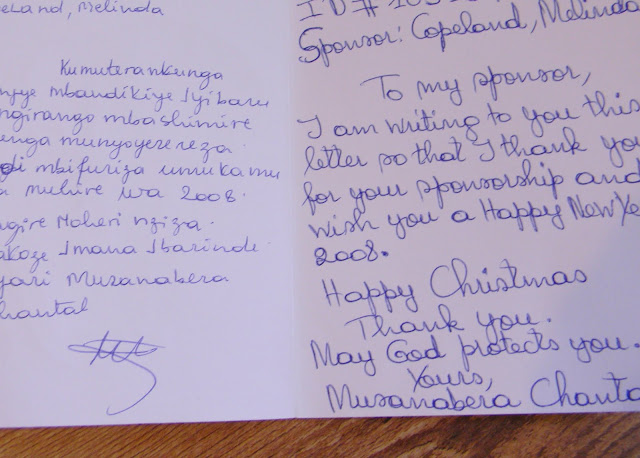 eland, Melinda
Kumuterankunga
njye mbandikiye Iyibaru
ngirango mbashimire
unga munyoyerereza.
di mbifuriza umukamu
a muhire wa 2008.
agire Noheri nziza.
akoze Imana Ibarinde.
yari Musanabera
hantal
ID #
Sponsor: Copeland, Melinda
To my sponsor,
I am writing to you this
letter so that I thank you
for your sponsorship and
wish you a Happy New Ye
2008.
Happy Christmas
Thank you.
May God protects you.
Yours,
Musanabera Chanta